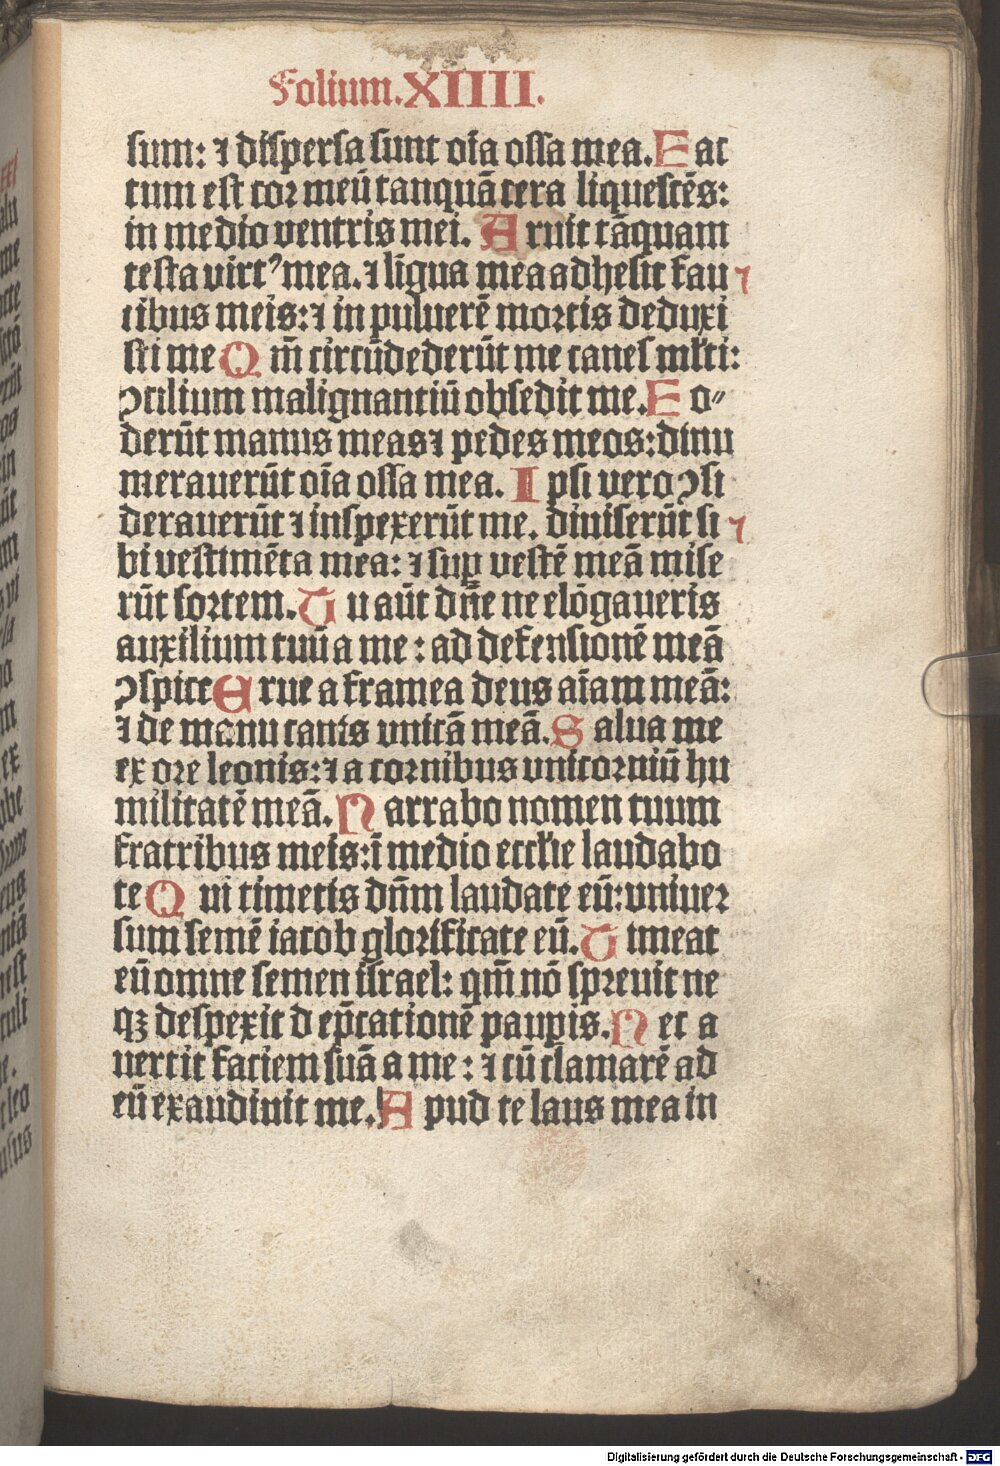 Folium.XIIII.
sum: ⁊ dispersa sunt oīa ossa mea. F ac
tum est cor meū tanquā cera liquescēs:
in medio ventris mei. A ruit tāquam
testa virt᾽ mea. ⁊ līgua mea adhesit fau
cibus meis: ⁊ in puluerē mortis deduxi
sti me Q m̄ circūdederūt me canes mĺti:
ↄcilium malignantiū obsedit me. F o⸗
derūt manus meas ⁊ pedes meos: dinu
merauerūt oīa ossa mea. I psi vero ↄsi
derauerūt ⁊ inspexerūt me. diuiserūt si
bi vestimēta mea: ⁊ suꝑ vestē meā mise
rūt sortem. T u aūt dn̄e ne elōgaueris
auxilium tuū a me: ad defensionē meā
ↄspice E rue a framea deus aīam meā:
⁊ de manu canis vnicā meā. S alua me
ex ore leonis: ⁊ a cornibus vnicorniū hu
militatē meā. N arrabo nomen tuum
fratribus meis: ī medio eccĺie laudabo
te Q ui timetis dn̄m laudate eū: vniuer
sum semē iacob glorificate eū. T imeat
eū omne semen israel: qm̄ nō spreuit ne
qꝫ despexit d ep̄cationē pauꝑis. N ec a
uertit faciem suā a me: ⁊ cū clamarē ad
eū exaudiuit me. A pud te laus mea in
Digitalisierung gefördert durch die Deutsche Forschungsgemeinschaft - DFG